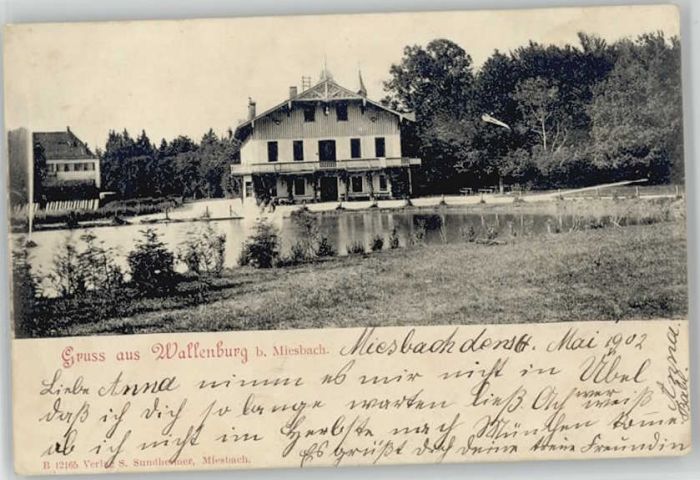 Gruss aus Wallenburg b. Miesbach.
Miesbach den 4. Mai 1902
Liebe Anna nimm es mir nicht in Übel
daß ich Dich so lange warten ließ. Ach wer weiß
ob ich nicht im Herbste nach München komme
Es grüßt Dich deine treue Freundin
Anna
B 12165 Verlag S. Sundheimer, Miesbach.